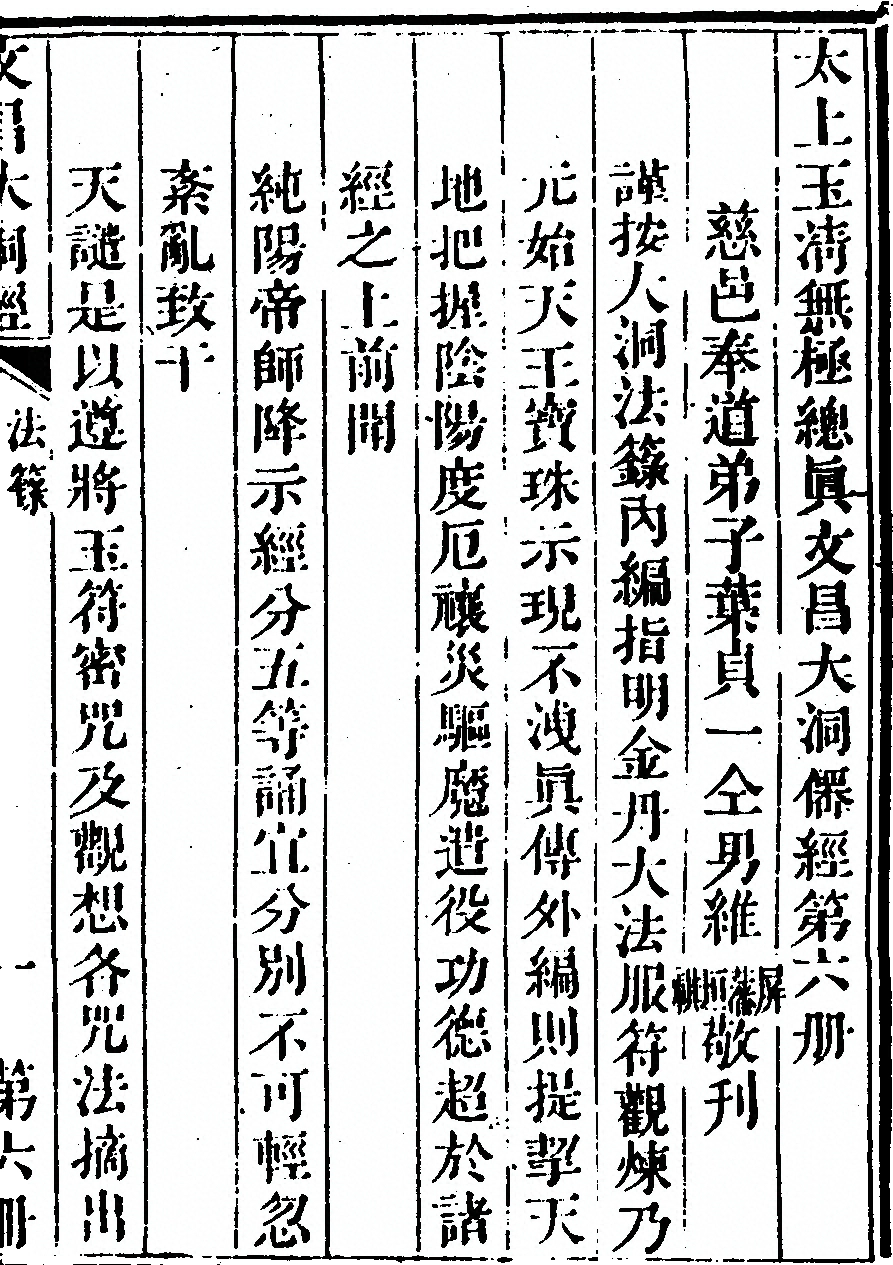 太上玉清無極總眞文昌大洞僊經第六册
慈邑奉道弟子葉貞一仝男維屏藩垣騏敬刊
謹按大洞法籙內編指明金丹大法服符觀煉乃
元始天王寶珠示現不洩眞傳外編則提挈天
地把握陰陽度厄禳災驅魔遣役功德超於諸
經之上前開
純陽帝師降示經分五等誦宜分別不可輕忽
紊亂致干
天譴是以遵將玉符密咒及觀想各咒法摘出
文昌大洞經 法籙 一 第六册